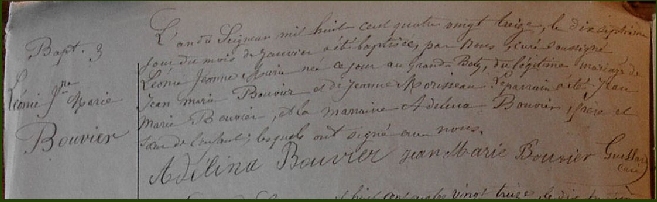 Bapt. 3
Léonie Jne Marie
Bouvier
L'an du Seigneur mil huit cent quatre vingt treize, le dix septième
jour du mois de Janvier a été baptisée, par nous Curé soussigné
Léonie Jeanne Marie née ce jour au grand Betz, du légitime mariage de
Jean Marie Bouvier et de Jeanne Rousseau. Le parrain a été Jean
Marie Bouvier, et la marraine Adelina Bouvier, frère et
sœur de l'enfant; lesquels ont signé avec nous.
Adélina Bouvier Jean Marie Bouvier
huit cent quatre vingt treize, le dix